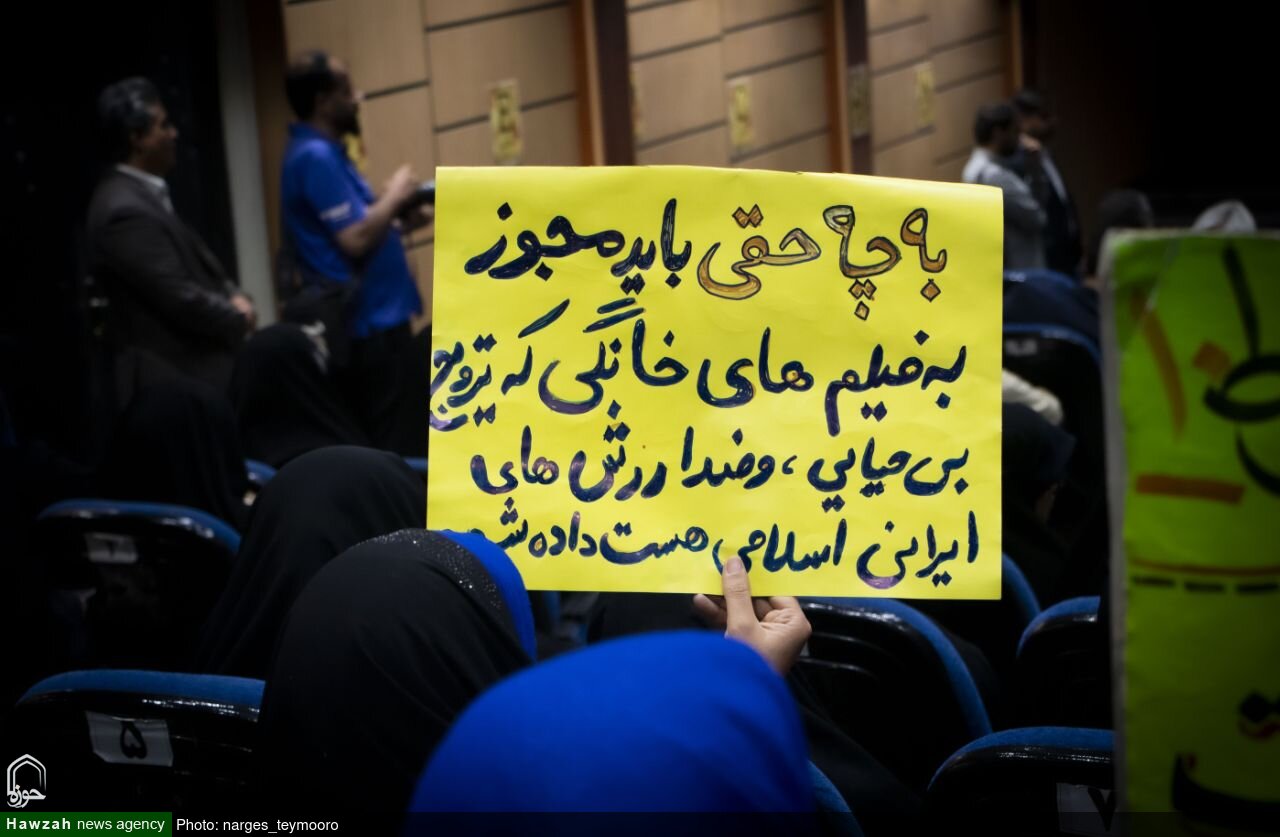 به چه حقی باید مجوز
به فیلم های خانگی که ترویج
بی حیایی ، و ضد ارزش های
ایرانی اسلامی هست داده شه
۵
حوزه
Hawzah news agency
Photo: narges_teymooro